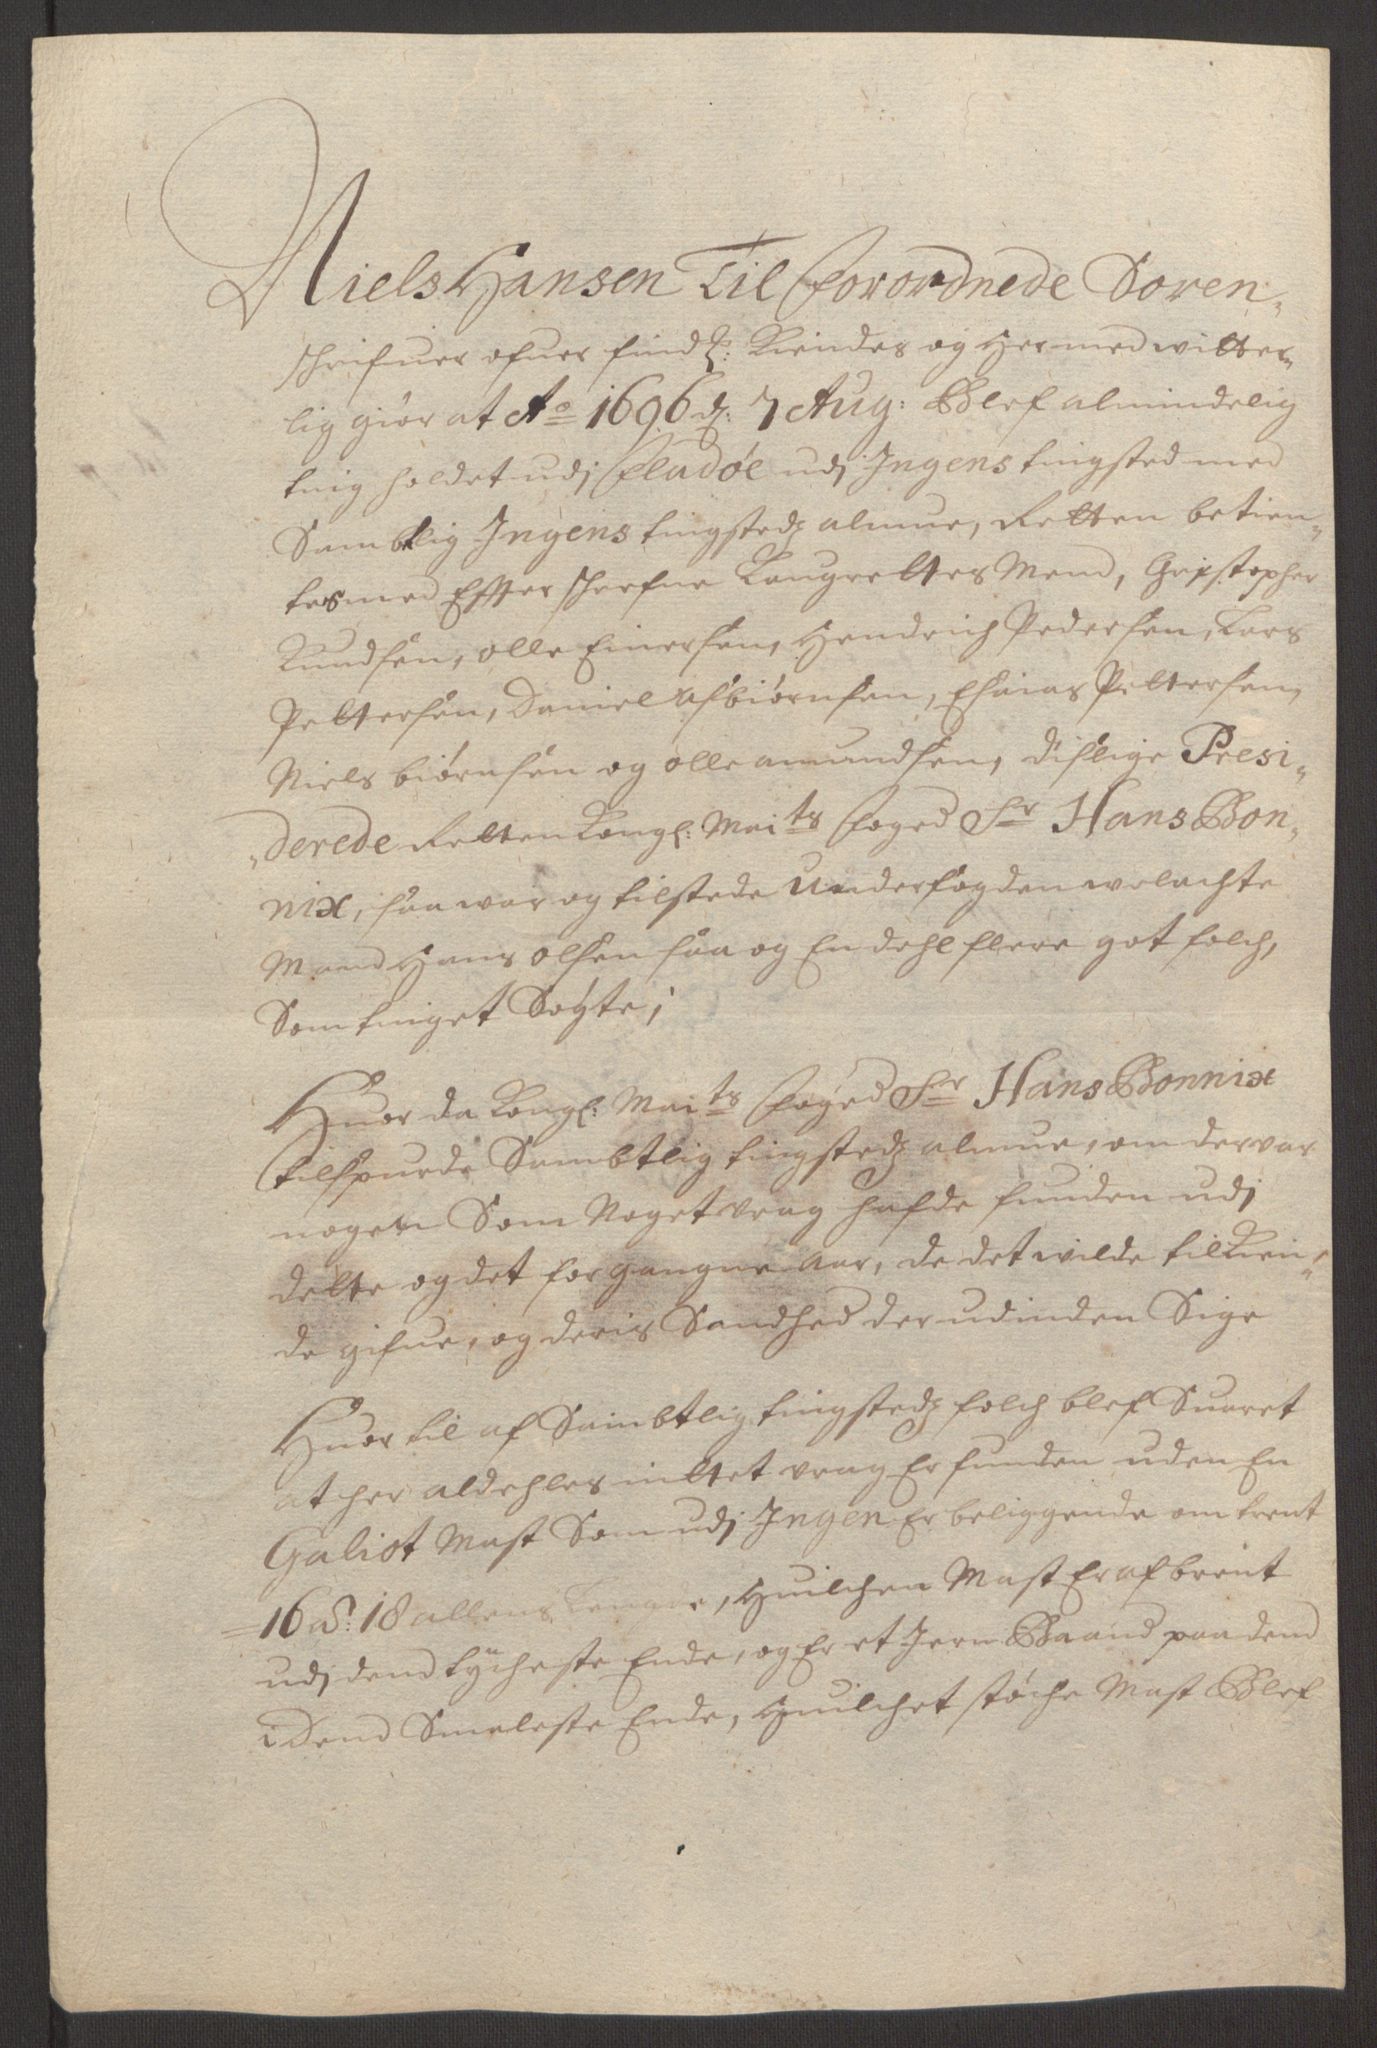 Niels Hansen Til forordnede Soren-
schrifuer ofuer find: Kiendes og Hermed witter-
lig giør at Ao 1696 d: 7 Aug: Blef almindelig
ting holdet udj Fladøe udj Ingens tingsted med
Sambtlig Ingens tingstedz almue, Retten betien-
tes med Effterschrefne Laugrettes Mend, Christopher
Knudsen, olle Einersen, Hendrich Pedersen, Lars
Pettersen, Daniel Asbiørnsen, Esaias Pettersen,
Niels biørnsen og olle amundsen, disligge Presi-
derede Retten Kongl: Maits foged Sr Hans Bon-
nix, saa war og tilstede Underfogden welachte
Mand Hans olsen saa og En dehl flere got folch,
Som tinget Søgte;
Huor da Kongl: Maits foged Sr Hans Bonnix
tilspurde Sambtlig tingstedz almue, om der var
nogen Som Noget vrag hafde funden udj
dette og det forgangne aar, de det wilde tilkien-
de gifue, og deris Sandhed der udinden Sige
Huor til af Sambtlig tingstedz folch blef Suaret
at her aldehles inttet vrag Er funden uden En
Galiot Mast Som udj Ingen Er beliggende omtrent
16 a: 18 allens Lengde, Huilchen Mast Er afbrent
udj dend tycheste Ende, og Er et Jern Baand paa dend
i dend Smaleste Ende, Huilchet støche Mast Blef